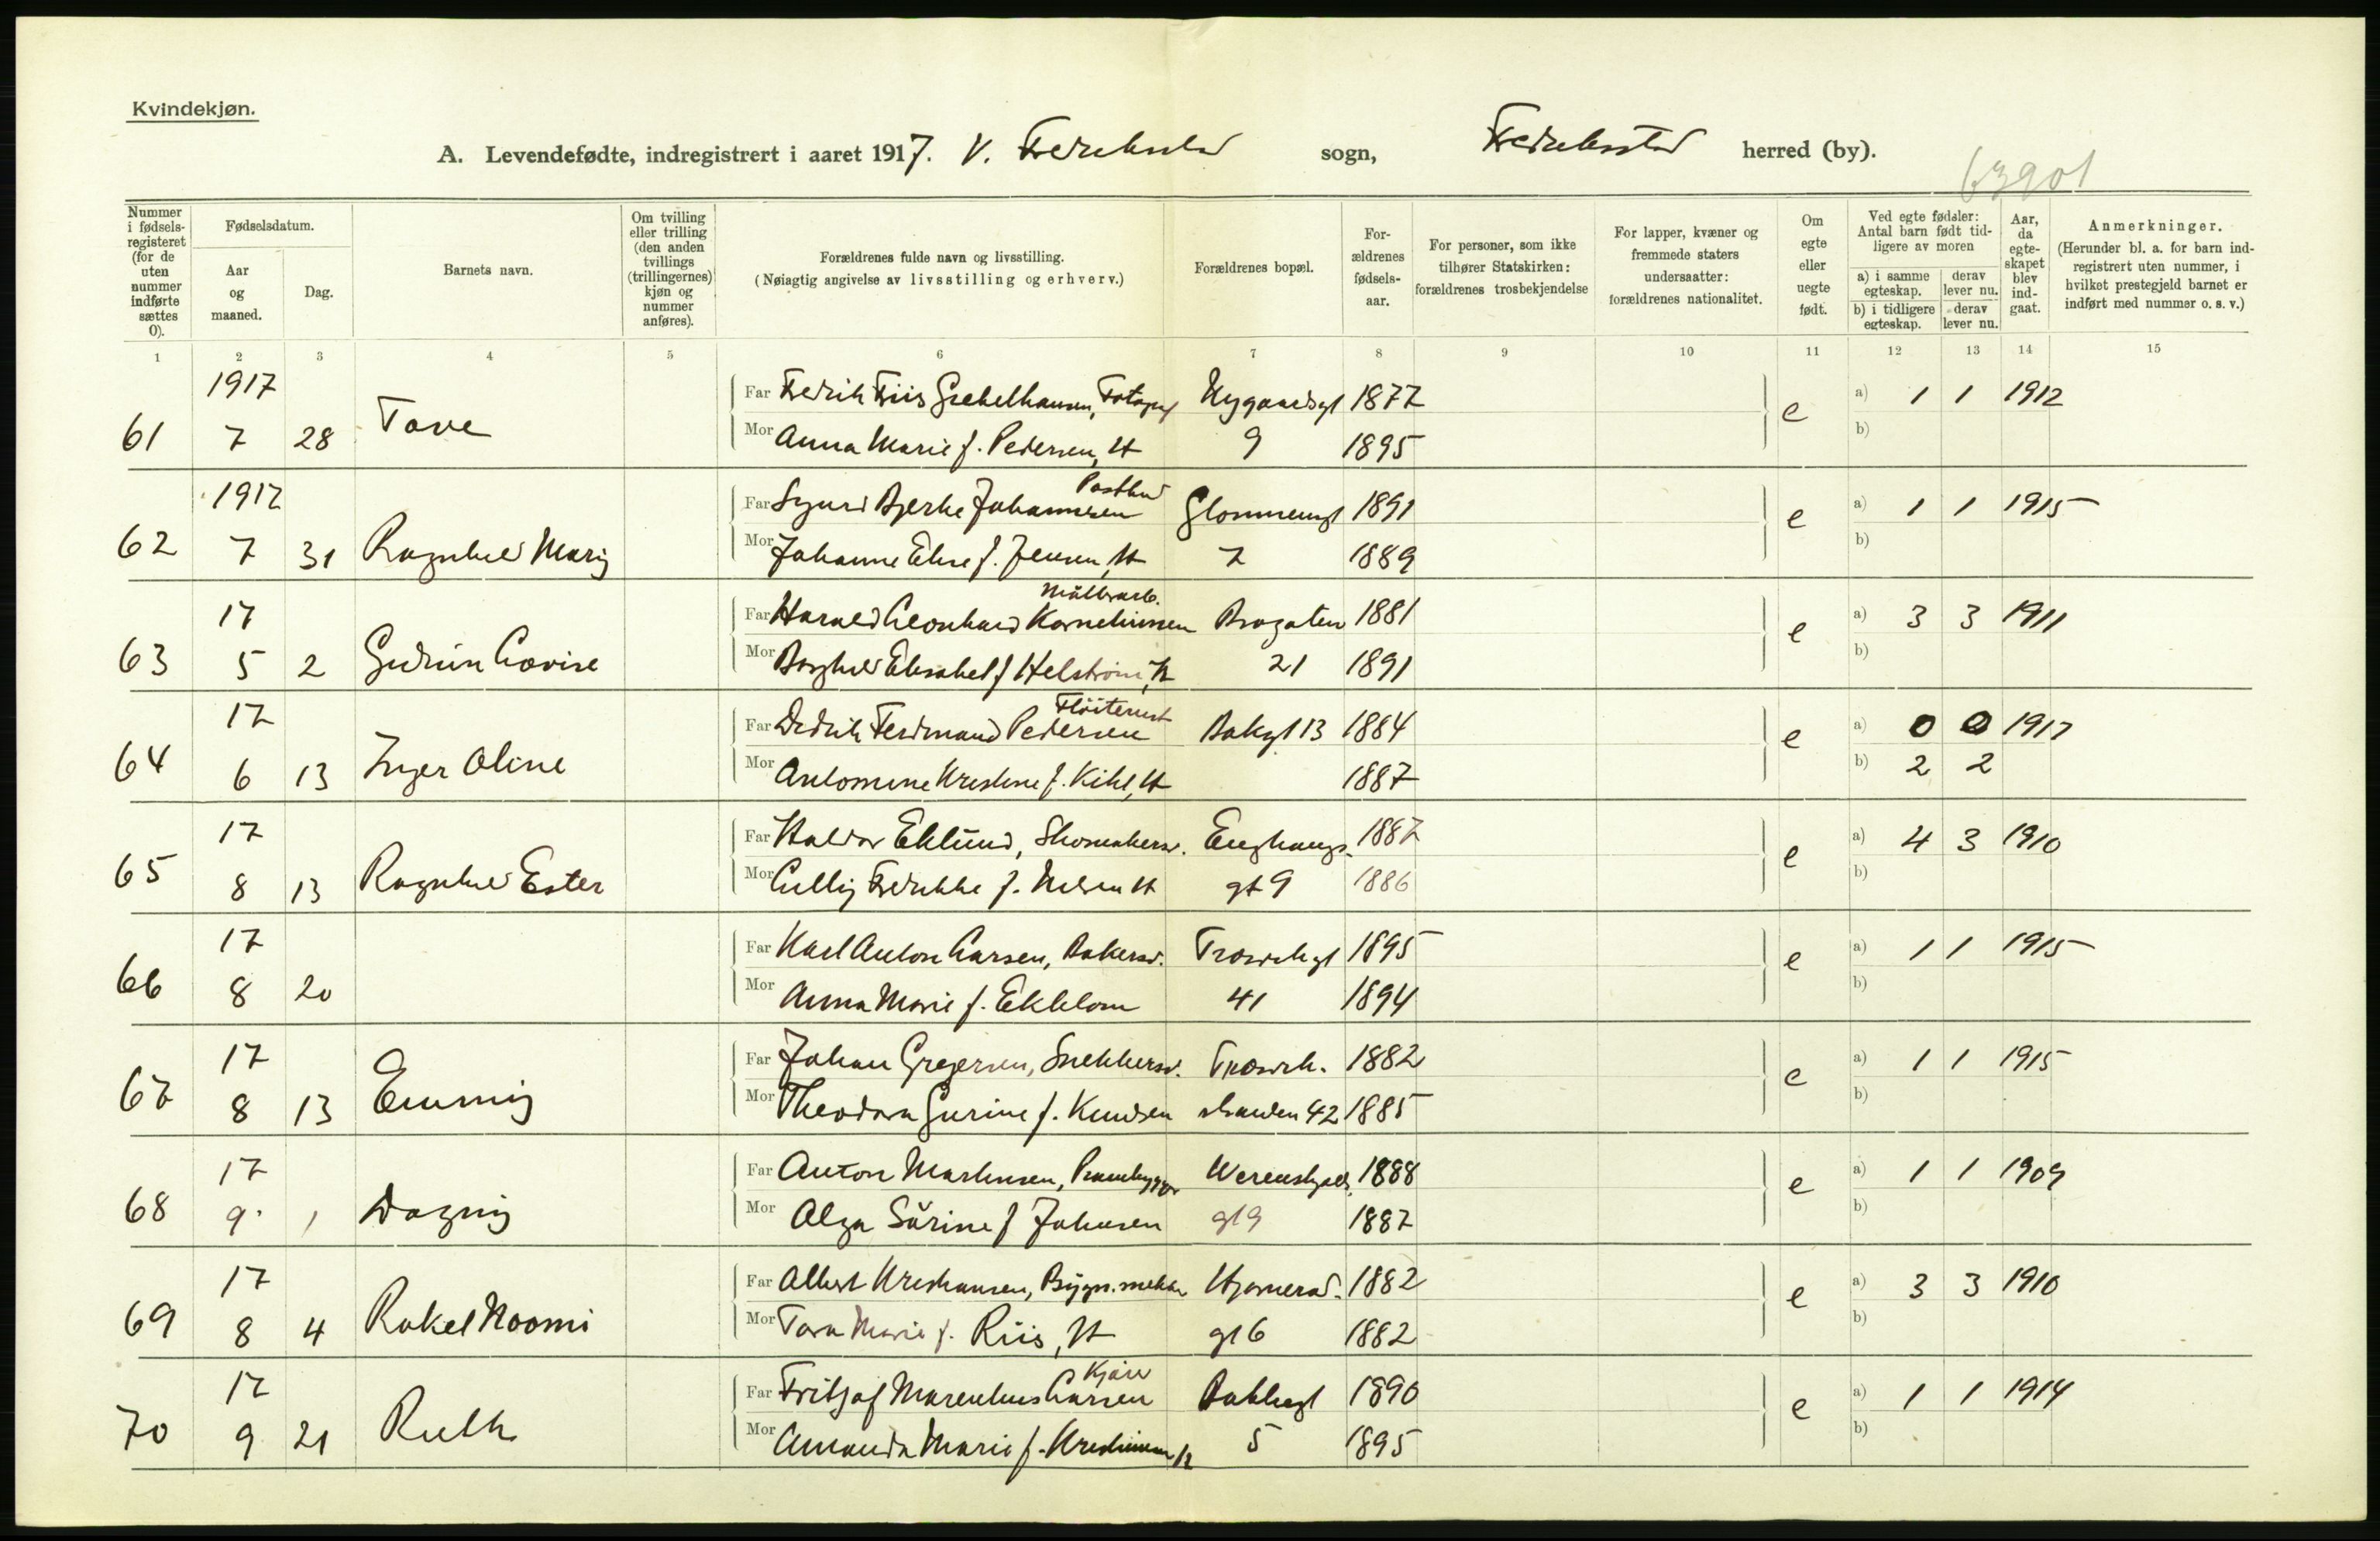 Kvindekjøn.
A. Levendefødte, indregistrert i aaret 1917. V. Fredrikstad sogn, Fredrikstad herred (by).
63901
Nummer i fødsels-registeret (for de uten nummer indførte sættes 0).
Fødselsdatum.
Aar og maaned.
Dag.
Barnets navn.
Om tvilling eller trilling (den anden tvillings (trillingernes) kjøn og nummer anføres).
Forældrenes fulde navn og livsstilling.
(Nøiagtig angivelse av livsstilling og erhverv.)
Forældrenes bopæl.
For-ældrenes fødsels-aar.
For personer, som ikke tilhører Statskirken: forældrenes trosbekjendelse
For lapper, kvæner og fremmede staters undersaatter: forældrenes nationalitet.
Om egte eller uegte født.
Ved egte fødsler: Antal barn født tid-ligere av moren
a) i samme egteskap.
derav lever nu.
b) i tidligere egteskap.
derav lever nu.
Aar, da egte-skapet blev ind-gaat.
Anmerkninger.
(Herunder bl. a. for barn ind-registrert uten nummer, i hvilket prestegjeld barnet er indført med nummer o. s. v.)
1 2 3 4 5 6 7 8 9 10 11 12 13 14 15
1917 Far Fredrik Friis Grebelhausen, Fotograf Nygaardsgt 1877 e a) 1 1 1912
61 7 28 Tove Mor Anna Marie f. Pedersen, H 9 1895 b)
1917 Far Sigurd Bjerke Johannesen Postbud Glommengt 1891 e a) 1 1 1915
62 7 31 Ragnhild Marij Mor Johanne Elise f. Jensen, H 7 1889 b)
17 Far Harald Leonhard Korneliussen Brogaten 1881 e a) 3 3 1911
63 5 2 Gudrun Lovise Mor Borghild Elisabet f Helström, H 21 1891 b)
17 Far Didrik Ferdinand Pedersen Bakgt 13 1884 e a) 0 0 1917
64 6 13 Inger Oline Mor Antomine Kristine f. Kihl, H 1887 b) 2 2
17 Far Haldor Eklund, Skomakersv. Enghaugs- 1887 e a) 4 3 1910
65 8 13 Ragnhild Ester Mor Lilly Fredrikke f. Nilsen H gt 9 1886 b)
17 Far Karl Anton Larsen, Bakersv. Trosvikgt 1895 e a) 1 1 1915
66 8 20 Mor Anna Marie f. Ekblom 41 1894 b)
17 Far Johan Gregersen, Snekkersv. Trosvik- 1882 e a) 1 1 1915
67 8 13 Emmij Mor Theodora Gurine f. Knudsen stranden 42 1885 b)
17 Far Anton Martinsen, Prambygger Werenskjolds 1888 e a) 1 1 1909
68 9 1 Dagnij Mor Olga Sörine f Johnsen gt 9 1887 b)
17 Far Albert Kristiansen, Bygn.snekker Hjørnerød- 1882 e a) 3 3 1910
69 8 4 Rakel Noomi Mor Tora Marie f. Riis, H gt 6 1882 b)
17 Far Fritjof Marentius Larsen Kjører Bakkegt 1890 e a) 1 1 1914
70 9 21 Ruth Mor Amanda Marie f. Kristiansen H 5 1895 b)